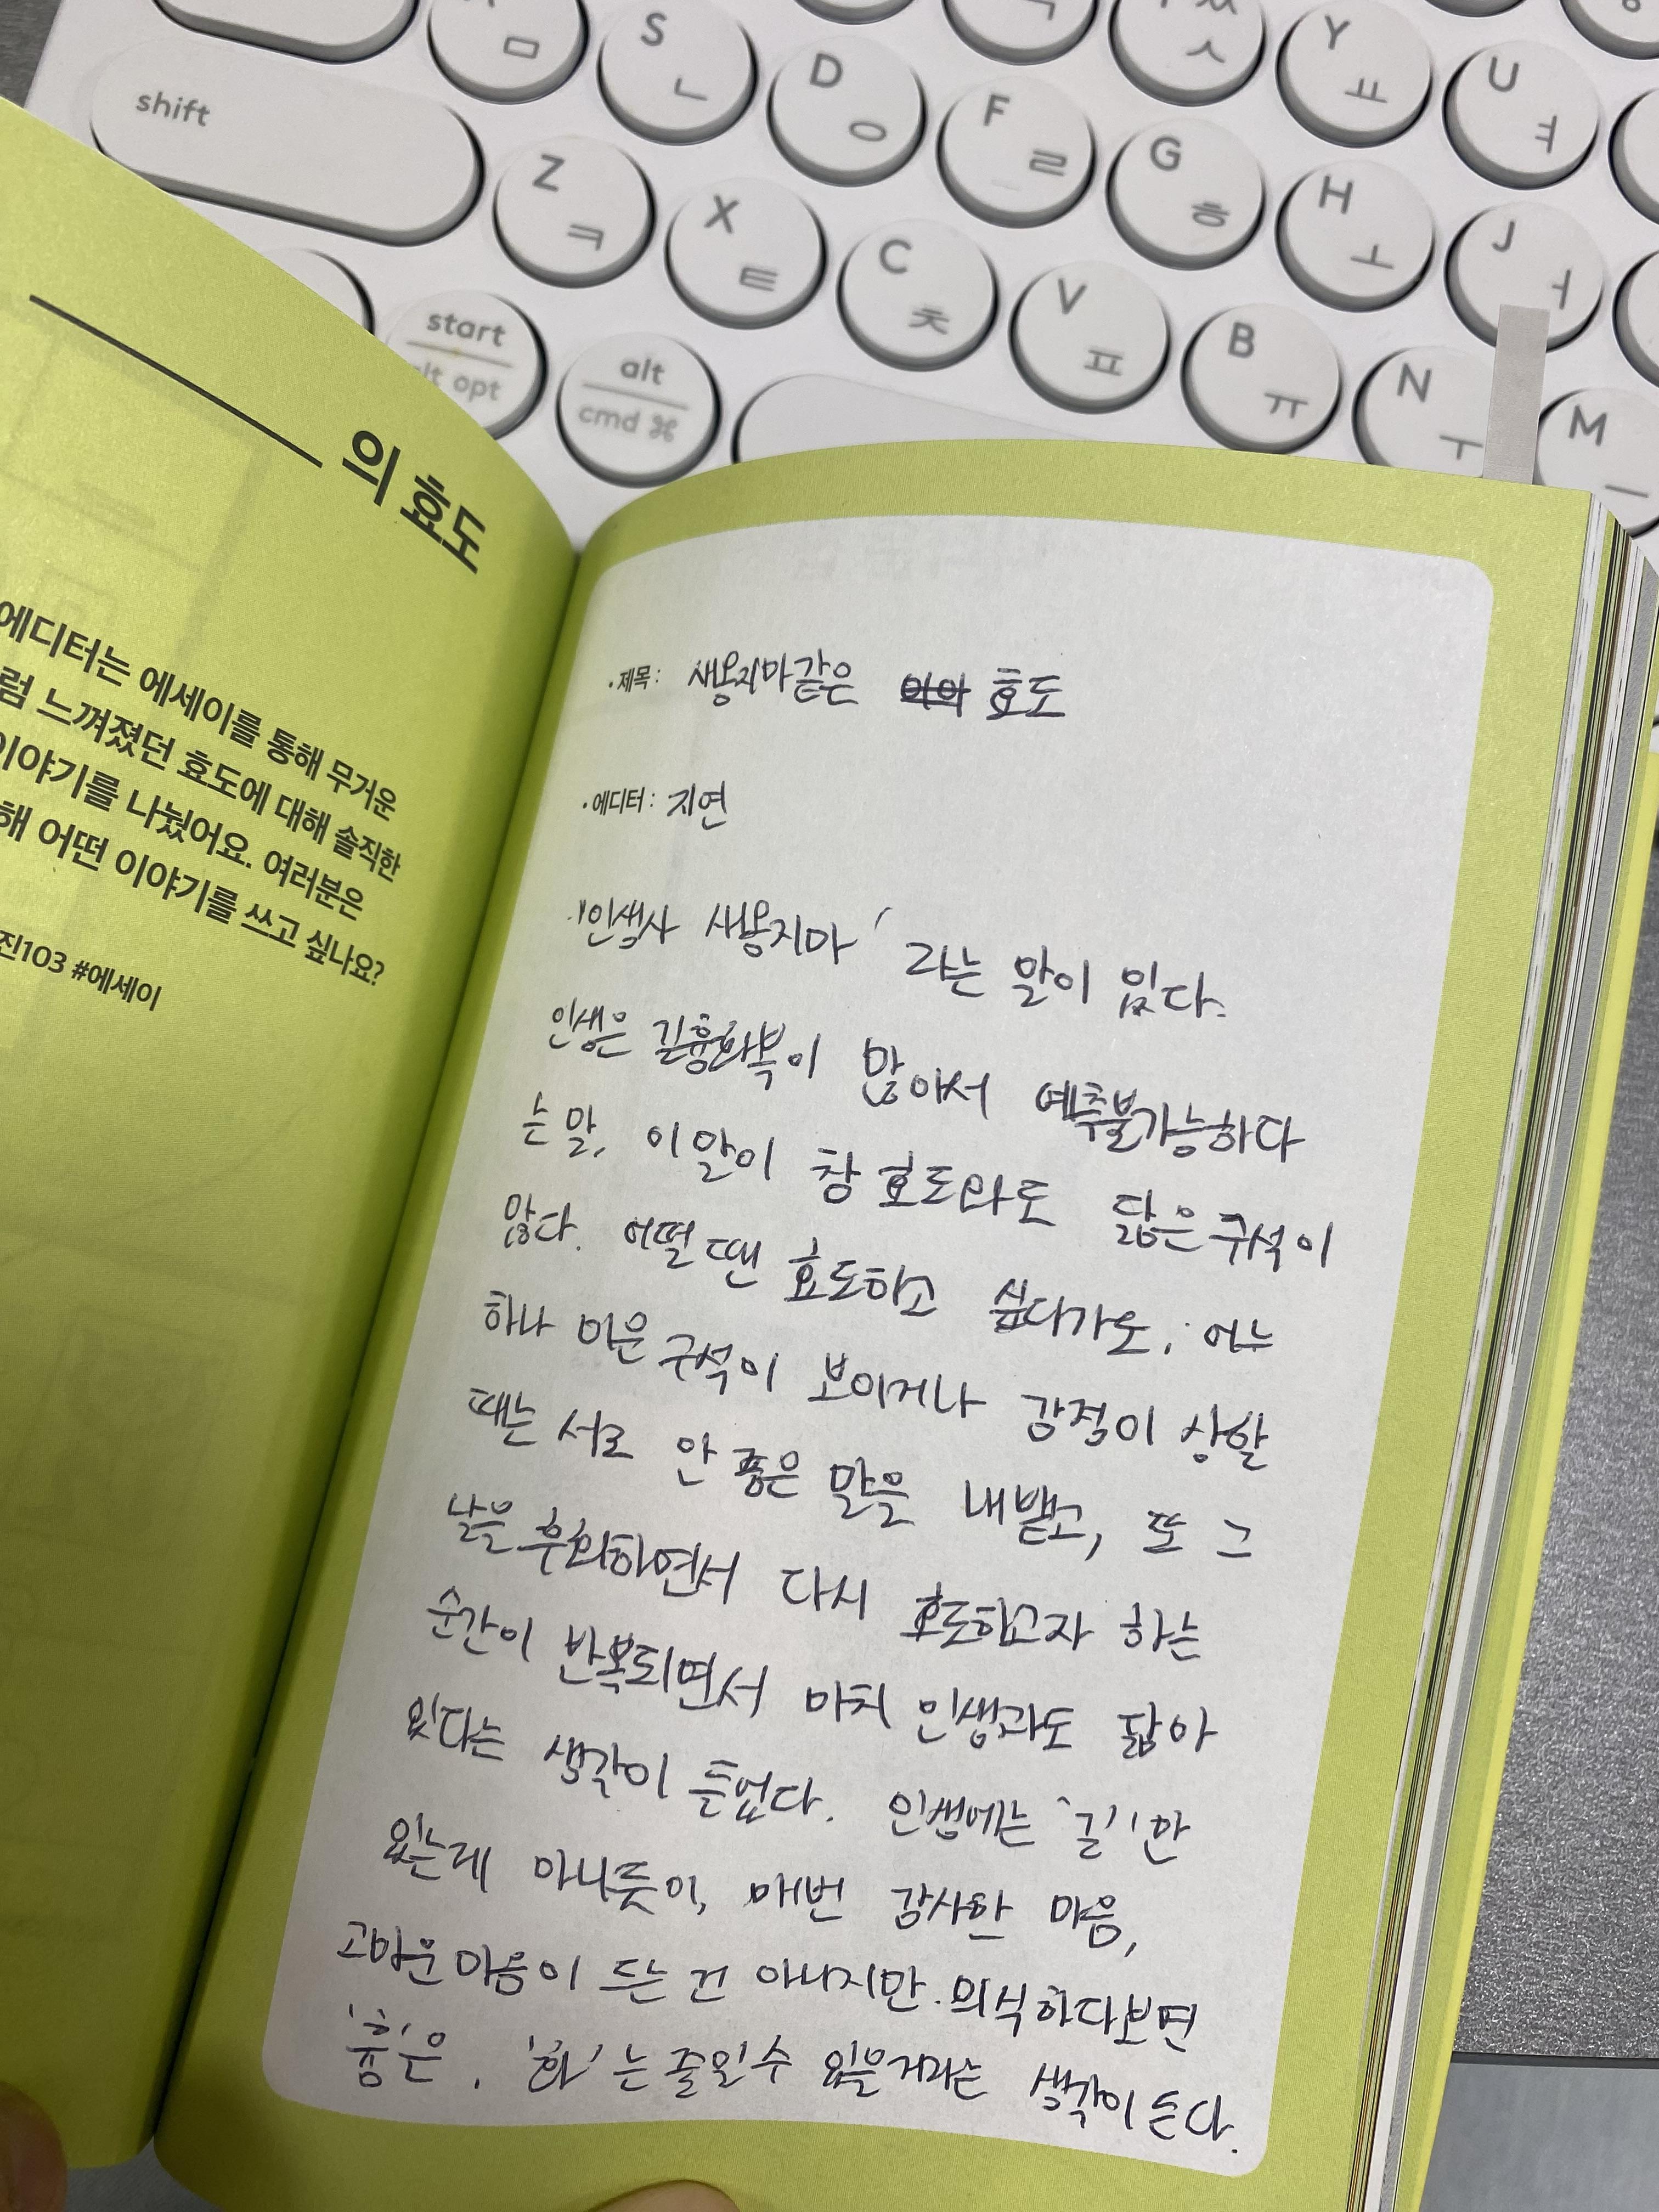 S ㄴ
D ㅇ
F ㄹ
G ㅎ
Y ㅛ
U ㅕ
H ㅗ
J ㅓ
shift
Z ㅋ
X ㅌ
C ㅊ
V ㅍ
B ㅠ
N ㅜ
M ㅡ
start
alt opt
alt
cmd ⌘
의 효도
에디터는 에세이를 통해 무거운
럼 느껴졌던 효도에 대해 솔직한
이야기를 나눴어요. 여러분은
해 어떤 이야기를 쓰고 싶나요?
진103 #에세이
·제목: 새옹지마같은 효도
·에디터: 지연
'인생사 새옹지마' 라는 말이 있다.
인생은 길흉화복이 많아서 예측불가능하다
는 말, 이 말이 참 효도라도 닮은 구석이
많다. 어떨 땐 효도하고 싶다가도, 어느
하나 미운 구석이 보이거나 감정이 상할
때는 서로 안 좋은 말을 내뱉고, 또 그
날을 후회하면서 다시 효도하고자 하는
순간이 반복되면서 마치 인생과도 닮아
있다는 생각이 들었다. 인생에는 '길'만
있는게 아니듯이, 매번 감사한 마음,
고마운 마음이 드는 건 아니지만 의식하다보면
'흉'은, '화'는 줄일 수 있을거라는 생각이 든다.